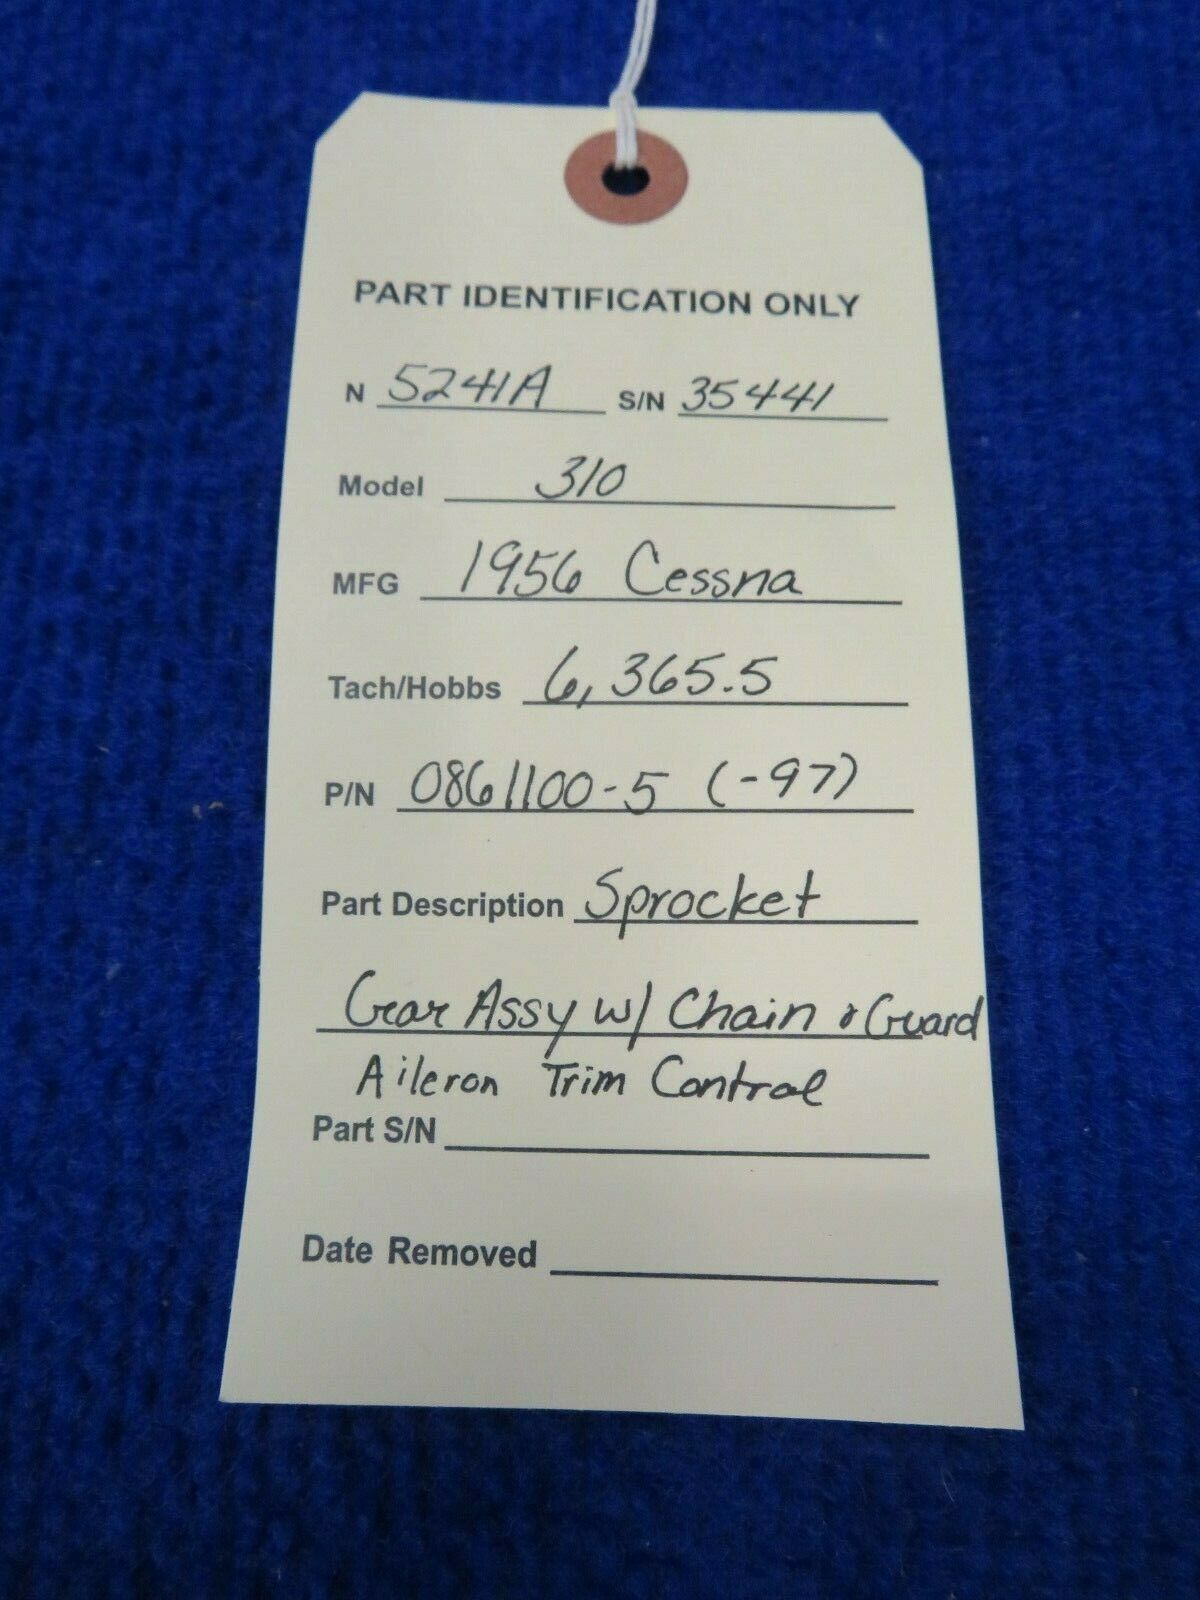 PART IDENTIFICATION ONLY
N 5241A S/N 35441
Model 310
MFG 1956 Cessna
Tach/Hobbs 6,365.5
P/N 0861100-5 (-97)
Part Description Sprocket
Gear Assy w/ Chain & Guard
Aileron Trim Control
Part S/N
Date Removed